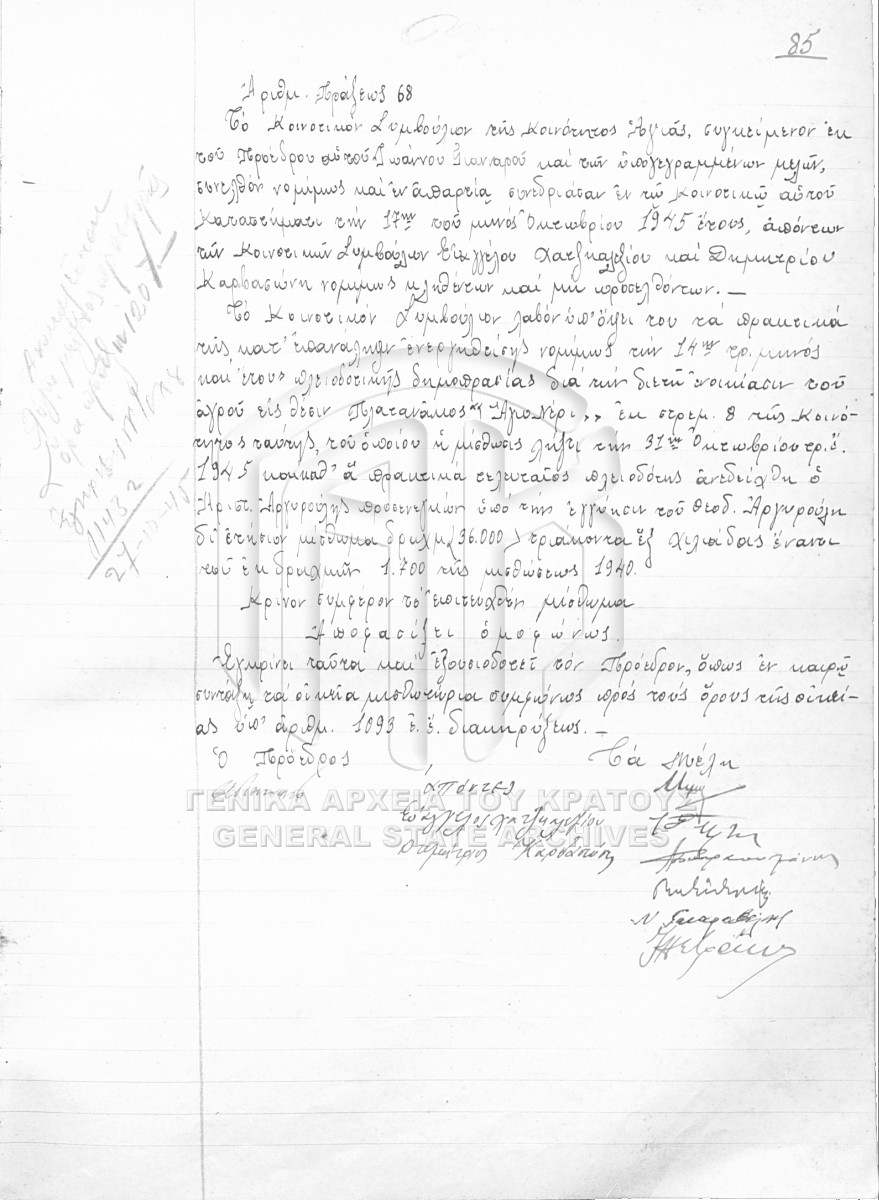 85
Ἀριθμ. Πράξεως 68
Τὸ Κοινοτικὸν Συμβούλιον τῆς Κοινότητος Ἁγιᾶς, συγκείμενον ἐκ
τοῦ Προέδρου αὐτοῦ Ἰωάννου καὶ τῶν ὑπογεγραμμένων μελῶν,
συνελθὸν νομίμως καὶ ἐν ἀπαρτίᾳ συνεδρίασαν ἐν τῷ Κοινοτικῷ αὐτοῦ
Καταστήματι τὴν 17ην τοῦ μηνὸς Ὀκτωβρίου 1945 ἔτους, ἀπόντων
τῶν Κοινοτικῶν Συμβούλων Εὐαγγέλου Χατζηαλεξίου καὶ Δημητρίου
Καρβασώνη νομίμως κληθέντων καὶ μὴ προσελθόντων. —
Τὸ Κοινοτικὸν Συμβούλιον λαβὸν ὑπ' ὄψει του τὰ πρακτικὰ
τῆς κατ' ἐπανάληψιν ἐνεργηθείσης νομίμως τὴν 14ην τρ. μηνὸς
καὶ ἔτους πλειοδοτικῆς δημοπρασίας διὰ τὴν διετῆ ἐνοικίασιν τοῦ
ἀγροῦ εἰς θέσιν Πλατανάμος " Ἁγιονέρι ,, ἐκ στρεμ. 8 τῆς Κοινό-
τητος ταύτης, τοῦ ὁποίου ἡ μίσθωσις λήγει τὴν 31ην Ὀκτωβρίου τρ. ἔ.
1945 καὶ καθ' ἃ πρακτικὰ τελευταῖος πλειοδότης ἀνεδείχθη ὁ
Ἀριστ. Ἀργυρούλης προσενεγκὼν ὑπὸ τὴν ἐγγύησιν τοῦ Θεοδ. Ἀργυρούλη
δι' ἐτήσιον μίσθωμα δραχμ. (36.000) τριάκοντα ἓξ χιλιάδας ἔναντι
τοῦ ἐκ δραχμῶν 1.700 τῆς μισθώσεως 1940.
Κρίνον συμφέρον τὸ ἐπιτευχθὲν μίσθωμα
Ἀποφασίζει ὁμοφώνως.
Ἐγκρίνει ταῦτα καὶ ἐξουσιοδοτεῖ τὸν Πρόεδρον, ὅπως ἐν καιρῷ
συντάξῃ τὰ οἰκεῖα μισθωτήρια συμφώνως πρὸς τοὺς ὅρους τῆς οἰκεί-
ας ὑπ' ἀριθμ. 1093 ἐ. ἔ. διακηρύξεως. —
Ὁ Πρόεδρος Τὰ Μέλη
ἀπόντες
Εὐάγγελος Χατζηαλεξίου
Δημήτριος Καρβασώνης
11432
27-10-45
ΓΕΝΙΚΑ ΑΡΧΕΙΑ ΤΟΥ ΚΡΑΤΟΥΣ
GENERAL STATE ARCHIVES